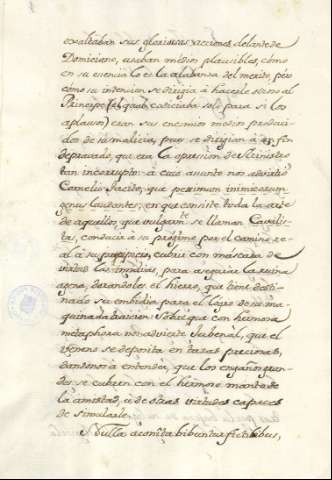 exaltaban sus gloriosas acciones delante de
Domiciano, usaban medios plausibles, cómo
en su esencia lo es la alabanza del merito, pero
cómo su intencion se dirigia à hacerle odioso al
Principe (el qual codiciaba solo para si los
aplausos) eran sus enemigos medios produci-
dos de la malicia, pues se dirigian à un fin
depravado, que era la opresion de Ministro
tan incorrupto: à cuio asunto nos advirtio
Cornelio Tacito, que pessimum inimicorum
genus laudantes; en que consiste toda la arte
de aquellos, que vulgarmte. se llaman Cavilis-
tas, conducir à su próximo por el camino re-
al à su precipicio, cubrir con máscara de
las insidias, para asegurar la ruina
agena, darandoles el hierro, que tiene desti-
nado su embidia para el lazo de su ma-
quinada traicion. Sobre que con hermosa
metaphora nos advierte Jubenal, que el
veneno se deposita en tazas preciosas,
dandonos à entender, que los engaños gran-
des se cubren con el hermoso manto de
la amistad, ù de otras virtudes capaces
de simularle.
Nulla aconita bibuntur fictilibus,